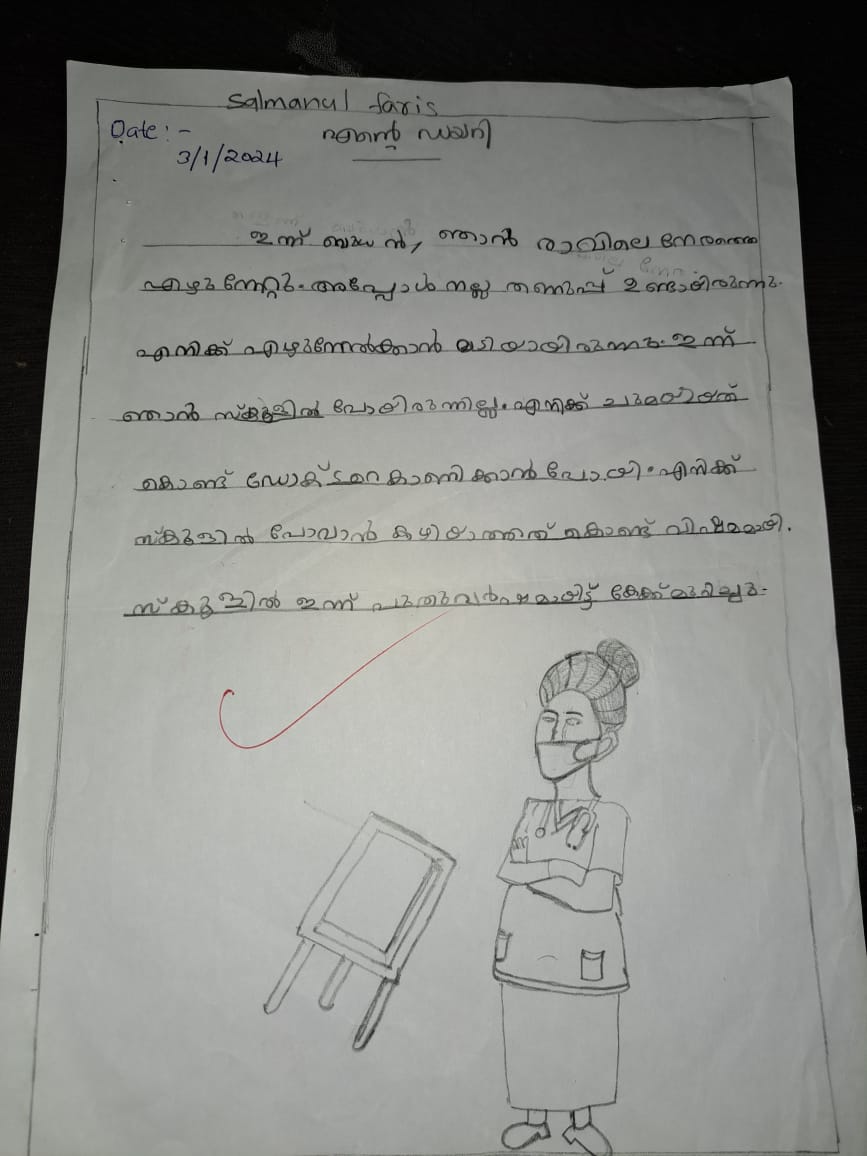 Salmanul faris
Date:-
എന്റെ ഡയറി
3/1/2024
ഇന്ന് ബുധൻ, ഞാൻ രാവിലെ നേരത്തെ
എഴുന്നേറ്റു. അപ്പോൾ നല്ല തണുപ്പ് ഉണ്ടായിരുന്നു.
എനിക്ക് എഴുന്നേൽക്കാൻ മടിയായിരുന്നു. ഇന്ന്
ഞാൻ സ്കൂളിൽ പോയിരുന്നില്ല. എനിക്ക് ചുമയായത്
കൊണ്ട് ഡോക്ടറെ കാണിക്കാൻ പോയി. എനിക്ക്
സ്കൂളിൽ പോവാൻ കഴിയാത്തത് കൊണ്ട് വിഷമമായി.
സ്കൂളിൽ ഇന്ന് പുതുവർഷമായിട്ട് കേക്ക് മുറിച്ചു.